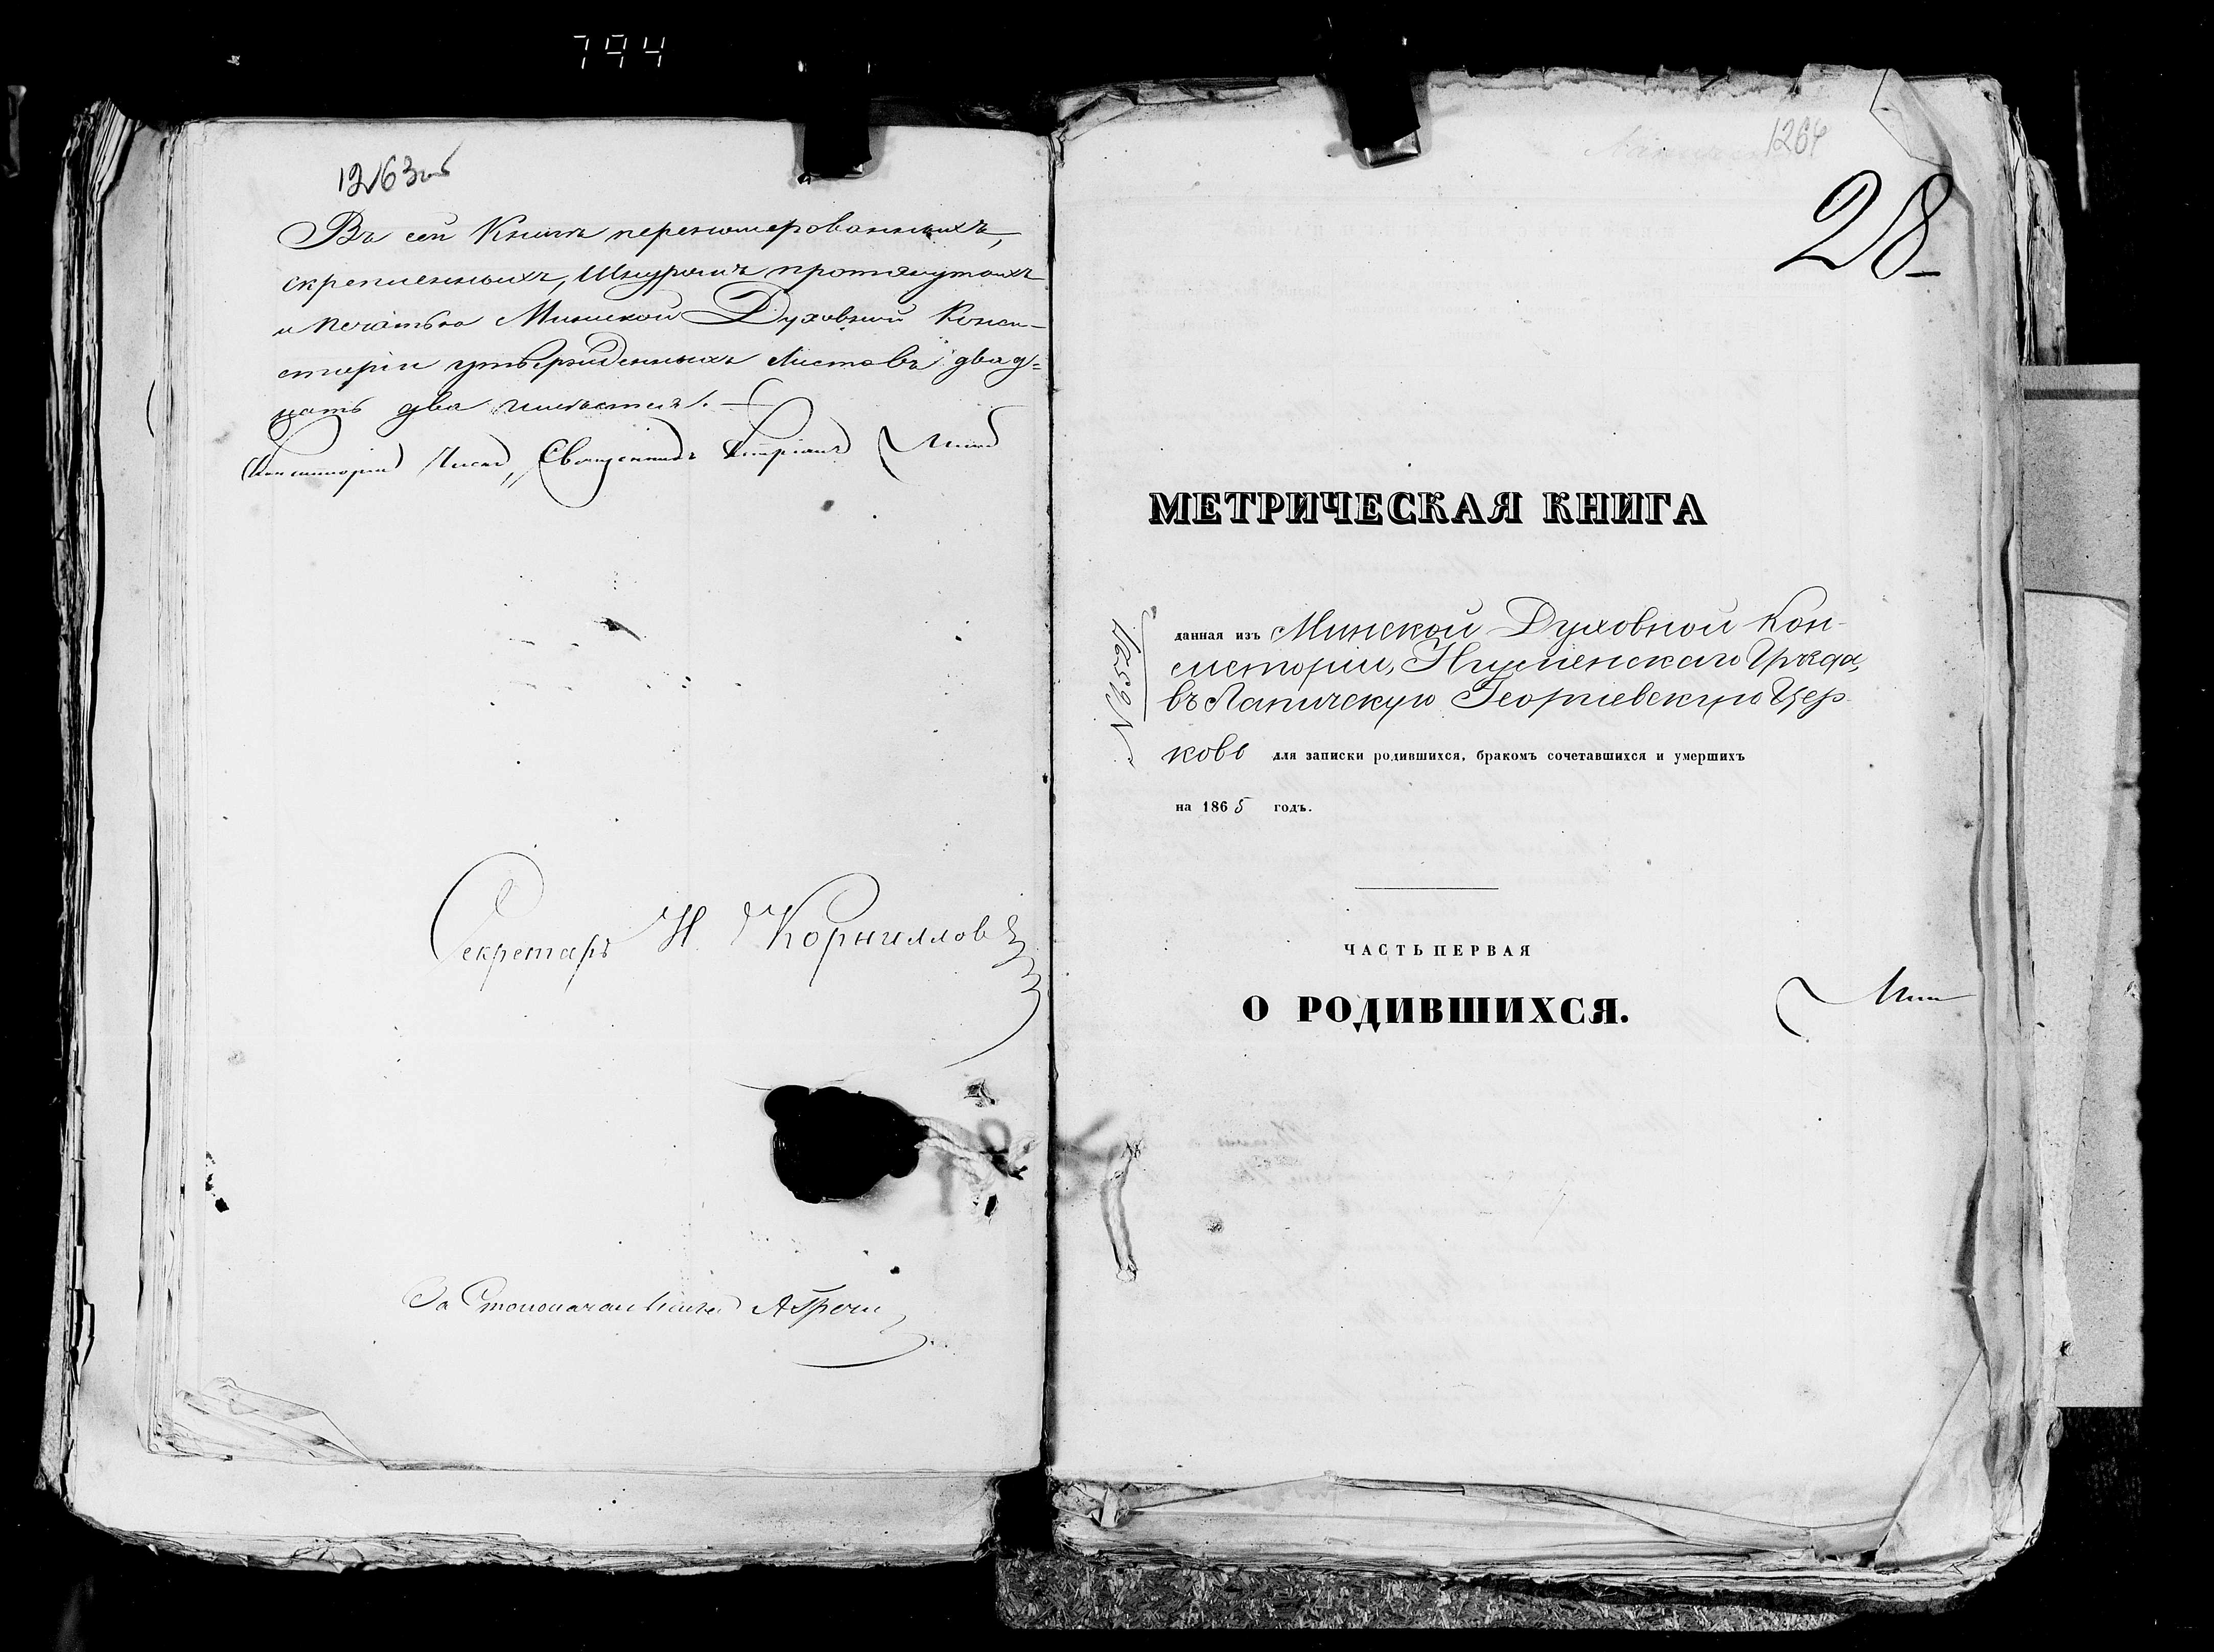 794
1263об
Въ сей Книгѣ перенумерованныхъ,
скрепленныхъ, Шнуромъ протянутыхъ
и печатью Минской Духовной Конси-
сторіи утвержденныхъ Листовъ двад=
цать два числится.
Консисторіи Членъ, Священникъ
Секретарь Н. Корниловъ
За Столоначальника
1264
28
МЕТРИЧЕСКАЯ КНИГА
данная изъ Минской Духовной Кон-
систоріи, Игуменскаго Уѣзда,
въ Лапичскую Георгіевскую Цер-
ковь для записки родившихся, бракомъ сочетавшихся и умершихъ
на 1865 годъ.
ЧАСТЬ ПЕРВАЯ
О РОДИВШИХСЯ.